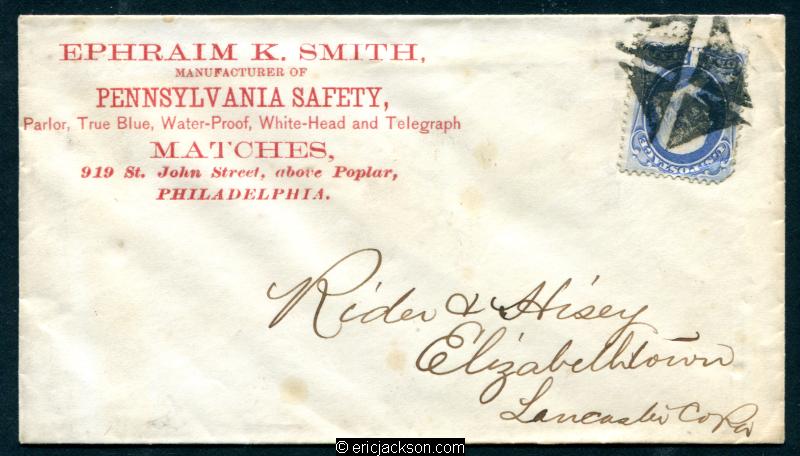 EPHRAIM K. SMITH,
MANUFACTURER OF
PENNSYLVANIA SAFETY,
Parlor, True Blue, Water-Proof, White-Head and Telegraph
MATCHES,
919 St. John Street, above Poplar,
PHILADELPHIA.
U.S. POSTAGE
Rider & Hisey
Elizabethtown
Lancaster Co Pa
© ericjackson.com